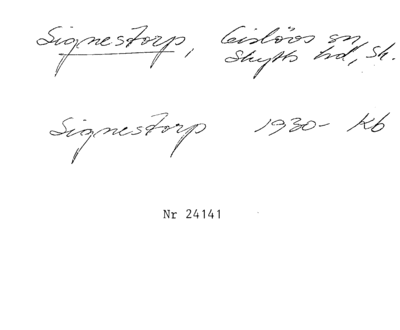 Signestorp, Gislövs sn,
Skytts hd, Sk.
Signestorp 1930- Kb
Nr 24141